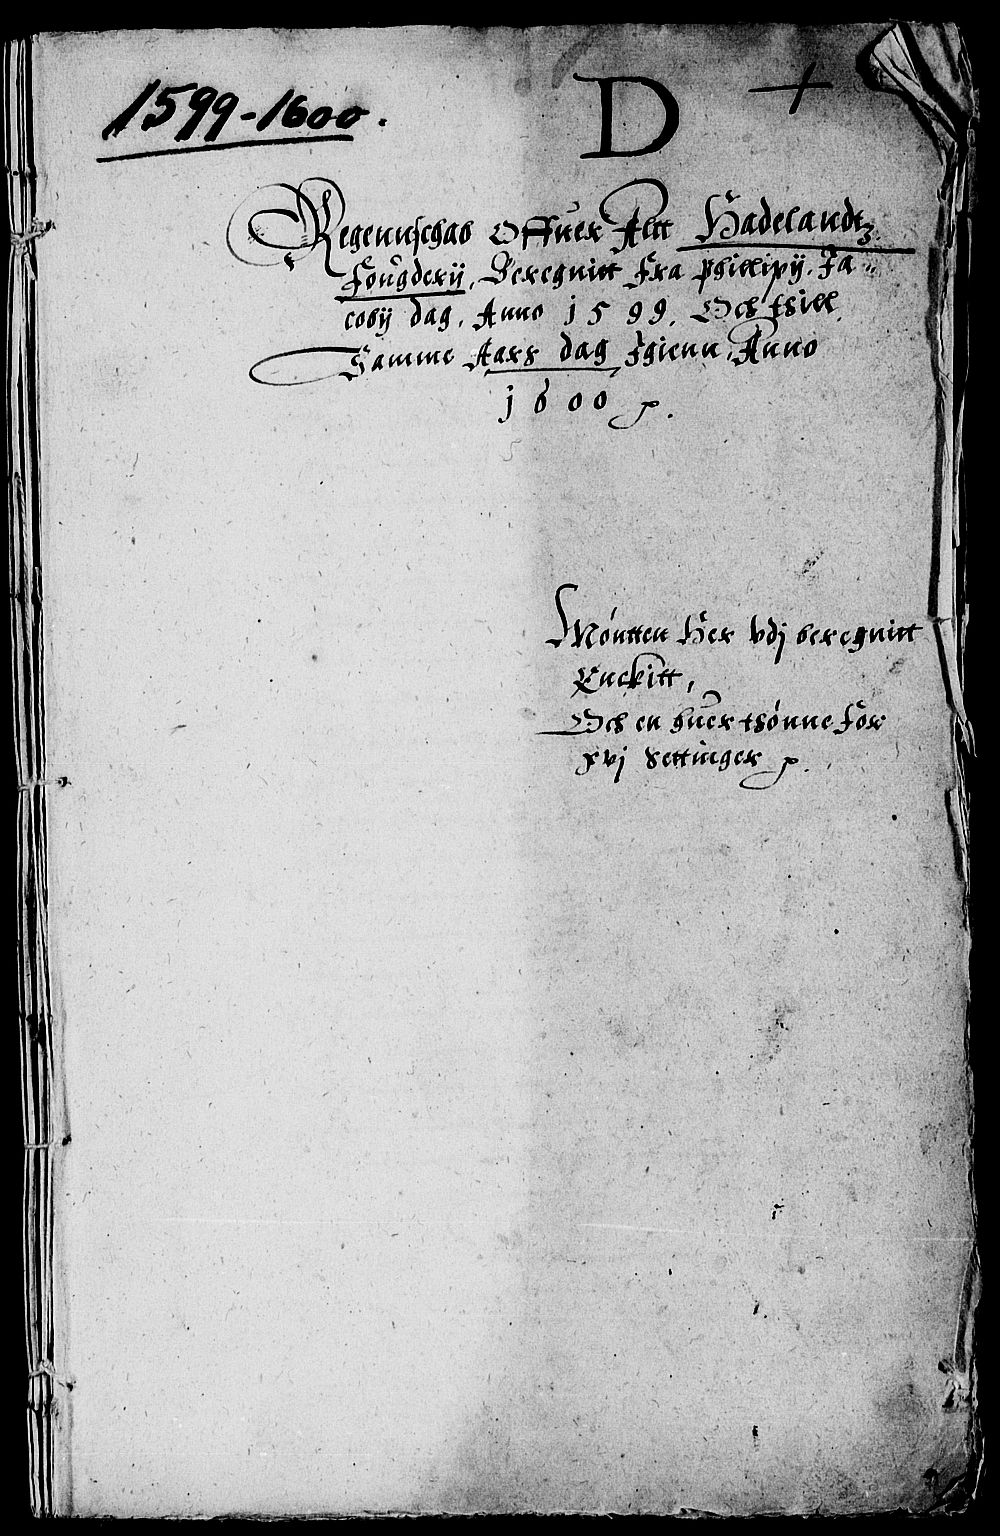 1599-1600.
D
Regennschab Offuer Altt Hadelandtz
Fougderij, Beregnitt Fra Phillipij. Ja
cobij dag. Anno 1599. Och thill
Samme Aars dag Igienn, Anno
1600
Møntten Her Vdj beregnitt
Enckitt,
Och en huer thønne for
xvj Settinger